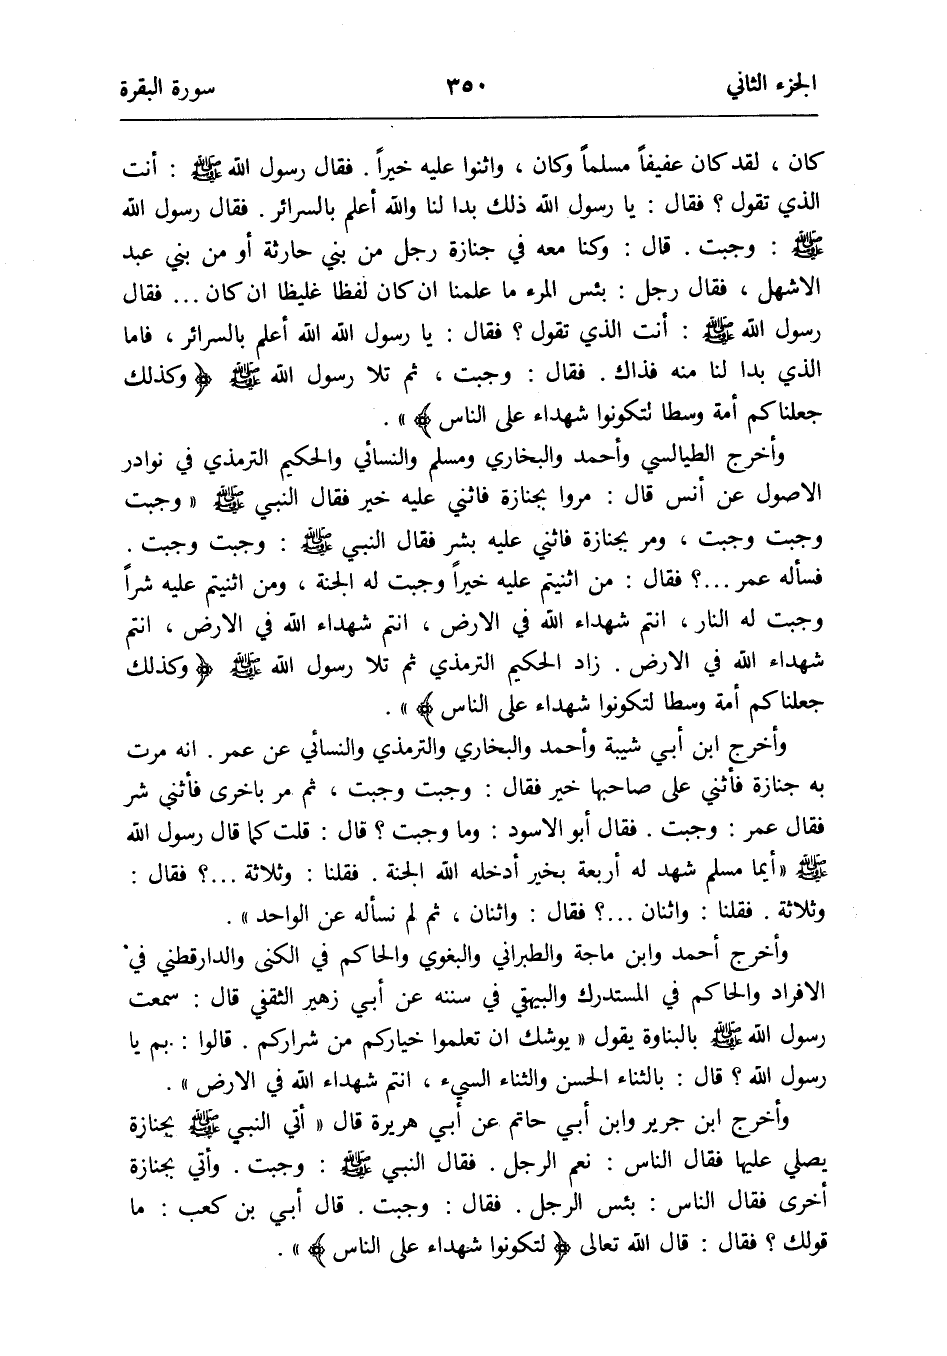 الجزء الثاني ٣٥٠ سورة البقرة
كان ، لقد كان عفيفاً مسلماً وكان ، واثنوا عليه خيراً . فقال رسول الله ﷺ : أنت
الذي تقول ؟ فقال : يا رسول الله ذلك بدا لنا والله أعلم بالسرائر . فقال رسول الله
ﷺ : وجبت . قال : وكنا معه في جنازة رجل من بني حارثة أو من بني عبد
الاشهل ، فقال رجل : بئس المرء ما علمنا ان كان لفظا غليظا ان كان ... فقال
رسول الله ﷺ : أنت الذي تقول ؟ فقال : يا رسول الله الله أعلم بالسرائر ، فاما
الذي بدا لنا منه فذاك . فقال : وجبت ، ثم تلا رسول الله ﷺ ﴿ وكذلك
جعلناكم أمة وسطا لتكونوا شهداء على الناس ﴾ » .
وأخرج الطيالسي وأحمد والبخاري ومسلم والنسائي والحكيم الترمذي في نوادر
الاصول عن أنس قال : مروا بجنازة فاثني عليه خير فقال النبي ﷺ « وجبت
وجبت وجبت ، ومر بجنازة فاثني عليه بشر فقال النبي ﷺ : وجبت وجبت .
فسأله عمر ...؟ فقال : من اثنيتم عليه خيراً وجبت له الجنة ، ومن اثنيتم عليه شراً
وجبت له النار ، انتم شهداء الله في الارض ، انتم شهداء الله في الارض ، انتم
شهداء الله في الارض . زاد الحكيم الترمذي ثم تلا رسول الله ﷺ ﴿ وكذلك
جعلناكم أمة وسطا لتكونوا شهداء على الناس ﴾ » .
وأخرج ابن أبي شيبة وأحمد والبخاري والترمذي والنسائي عن عمر . انه مرت
به جنازة فأثني على صاحبها خير فقال : وجبت وجبت ، ثم مر باخرى فأثني شر
فقال عمر : وجبت . فقال أبو الاسود : وما وجبت ؟ قال : قلت كما قال رسول الله
ﷺ « أيما مسلم شهد له أربعة بخير أدخله الله الجنة . فقلنا : وثلاثة ...؟ فقال :
وثلاثة . فقلنا : واثنان ...؟ فقال : واثنان ، ثم لم نسأله عن الواحد » .
وأخرج أحمد وابن ماجة والطبراني والبغوي والحاكم في الكنى والدارقطني في
الافراد والحاكم في المستدرك والبيهقي في سننه عن أبي زهير الثقفي قال : سمعت
رسول الله ﷺ بالبناوة يقول « يوشك ان تعلموا خياركم من شراركم . قالوا : بم يا
رسول الله ؟ قال : بالثناء الحسن والثناء السيء ، انتم شهداء الله في الارض » .
وأخرج ابن جرير وابن أبي حاتم عن أبي هريرة قال « أتي النبي ﷺ بجنازة
يصلي عليها فقال الناس : نعم الرجل . فقال النبي ﷺ : وجبت . وأتي بجنازة
أخرى فقال الناس : بئس الرجل . فقال : وجبت . قال أبي بن كعب : ما
قولك ؟ فقال : قال الله تعالى ﴿ لتكونوا شهداء على الناس ﴾ » .